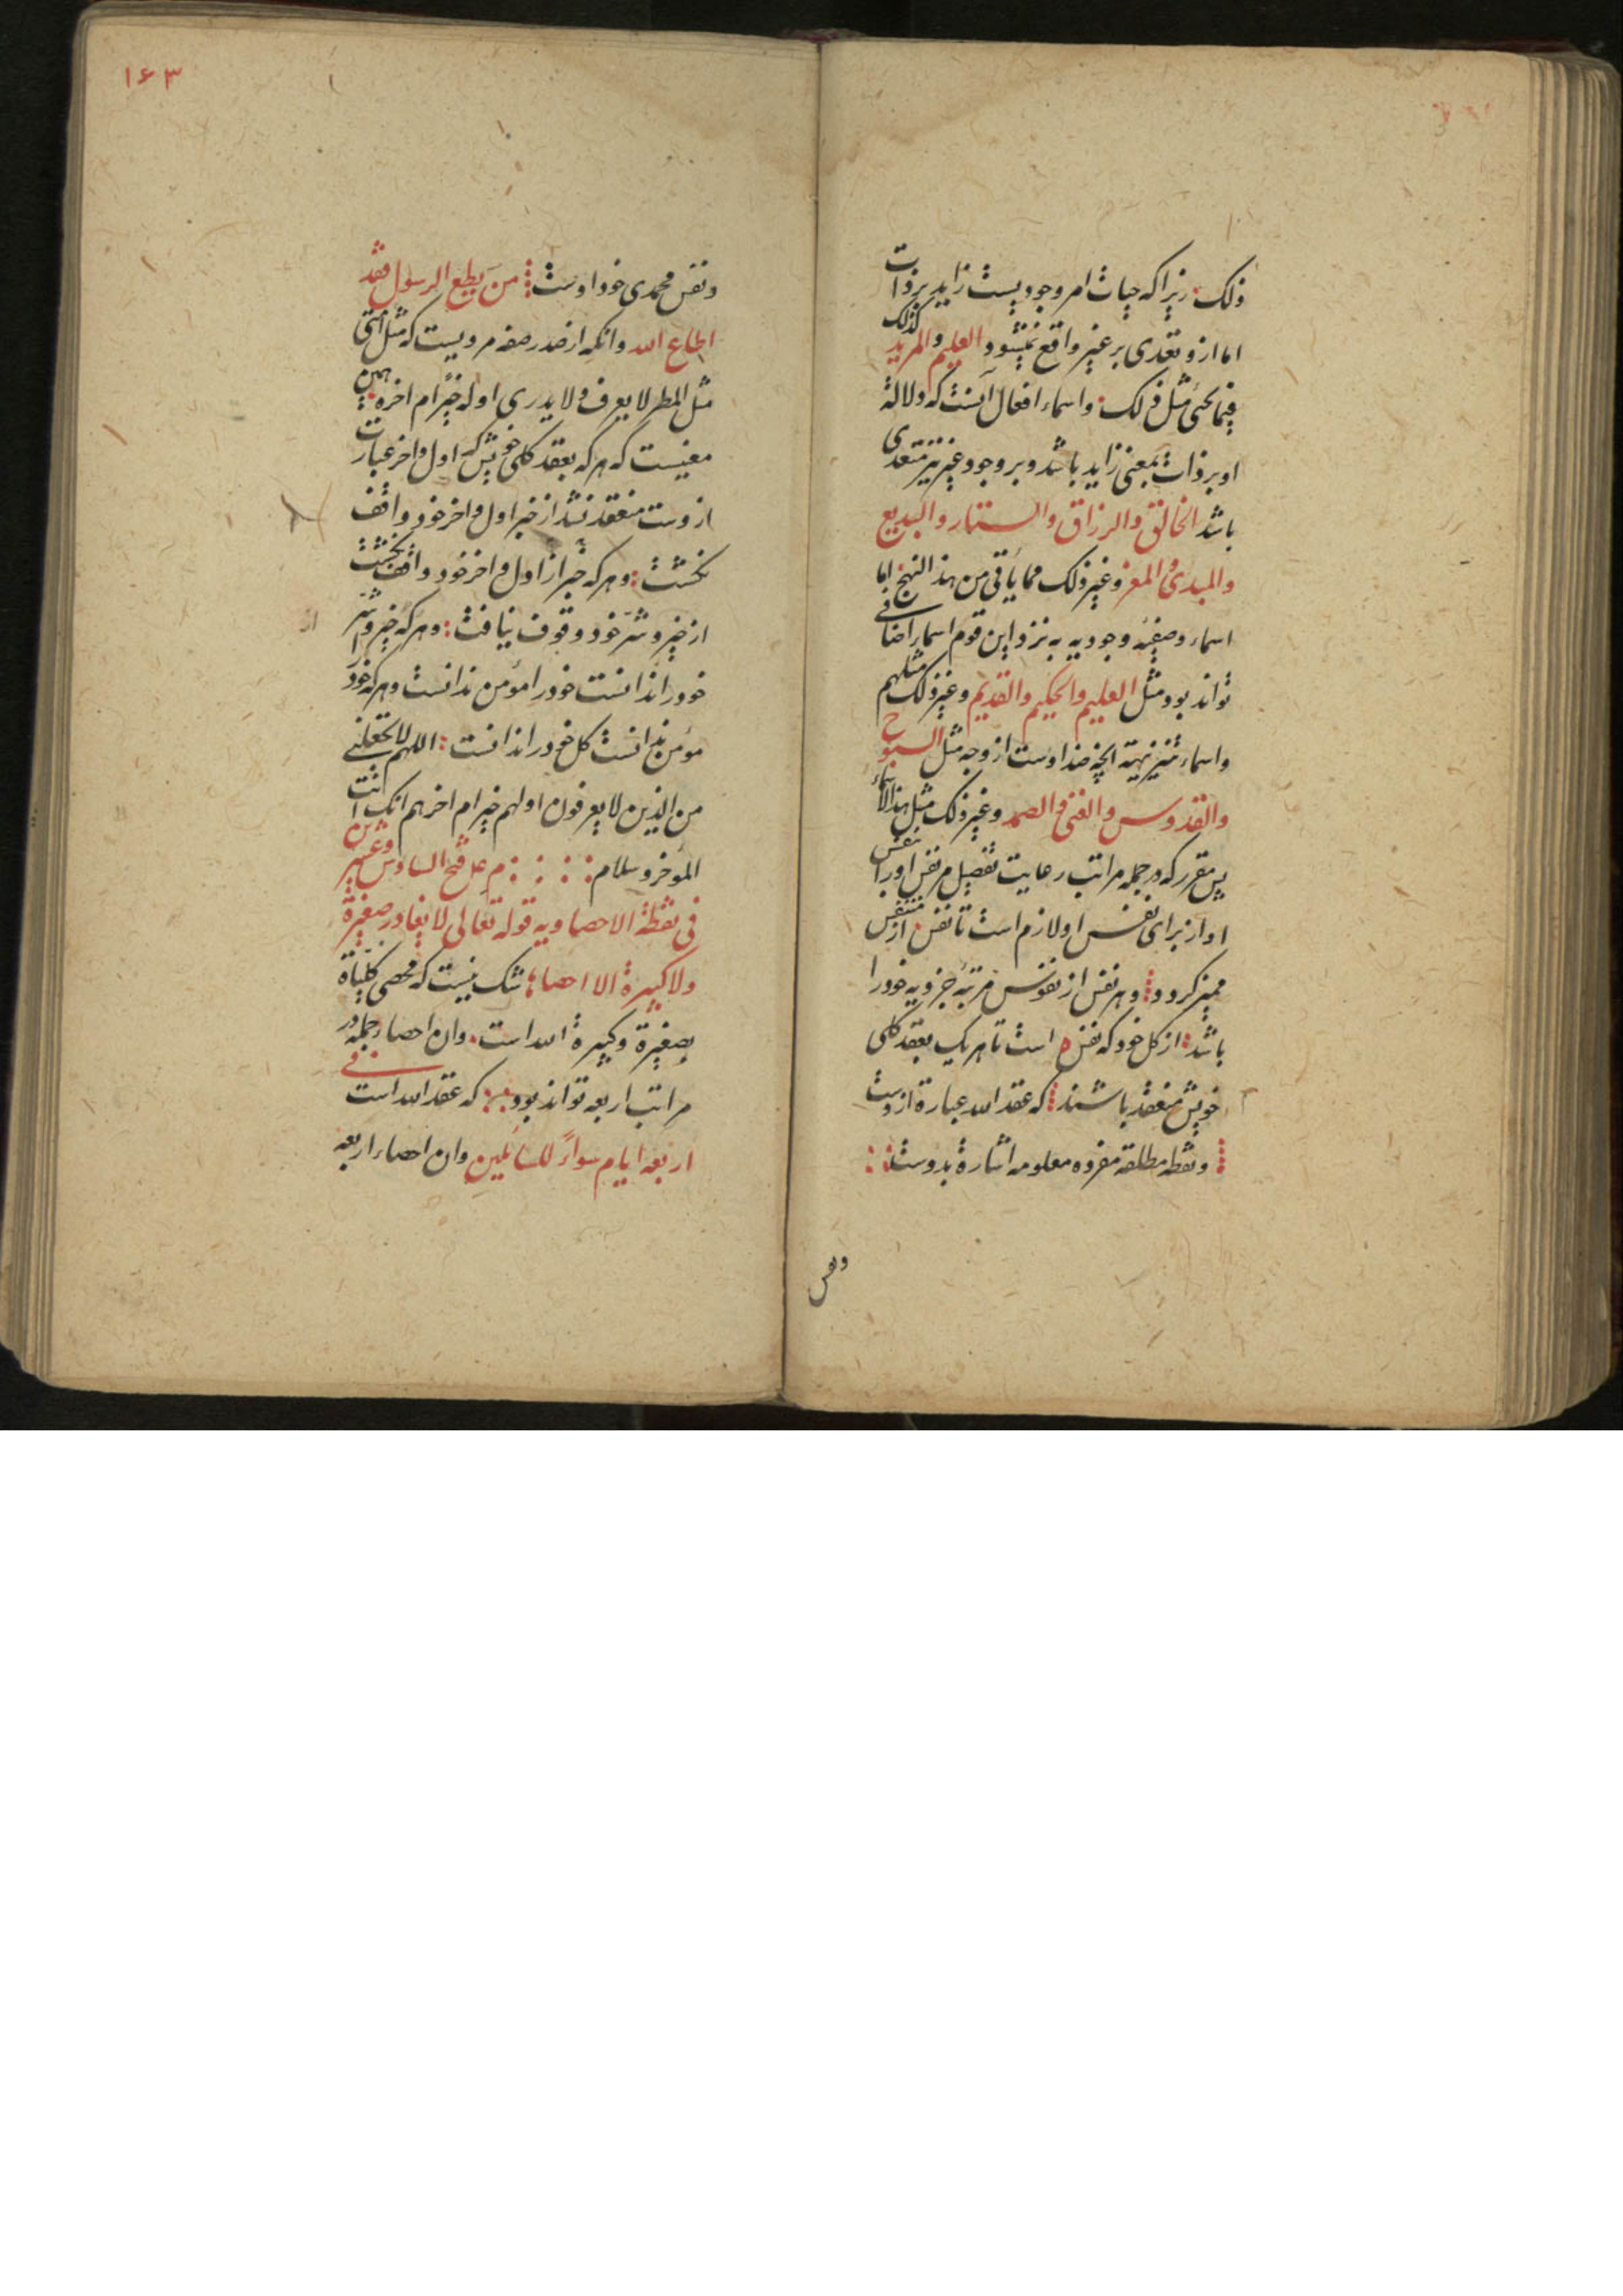 ذلک زیرا که حیات امر وجودیست زاید بر ذات
اما ازو تعدی بر غیر واقع نمیشود العلیم والمرید کذلک
فیما نحن مثل ذلک واسماء افعال آنست که دلالة
او بر ذات بمعنی زاید باشد وبر وجود غیر نیز متعدی
باشد الخالق والرزاق والستار والبدیع
والمبدئ والمعز وغیر ذلک مما یأتی من هذا النهج اما
اسماء وصفیه وجودیه به نزد این قوم اسماء اضافی
تواند بود مثل العلیم والحکیم والقدیم وغیر ذلک مثلهم
واسماء تنزیهیة انچه ضد اوست از وجه مثل السبوح
والقدوس والغنی والصمد وغیر ذلک مثل هذا الاسماء
پس مقرر که در جمله مراتب رعایت تفصیل مر نفس او را بنفس
او از برای نفس او لازم است تا نفس از متنفس
ممیز گردد وهر نفس از نفوس مرتبه جزویه خود را
باشد از کل خود که نفس است تا هر یک بعقد کلی
خویش منعقد باشند که عقد الله عبارة ازوست
ونقطه مطلقه مفرده معلومه اشارة بدوست
ونفس
۱۶۳
ونفس محمدی خود اوست من یطع الرسول فقد
اطاع الله وانکه از صدر صفه مرویست که مثل امتی
مثل المطر لا یعرف ولا یدری اوله خیر ام اخره همین
معنیست که هر که بعقد کلی خویش که اول واخر عبارت
ازوست منعقد نشد از خبر اول واخر خود واقف
نگشت وهر که خبر از اول واخر خود واقف نگشت
از خیر وشر خود وقوف نیافت وهر که خیر وشر
خود را ندانست خود را مؤمن ندانست وهر که خود را
مؤمن ندانست کل خود را ندانست اللهم لا تجعلنی
من الذین لا یعرفون اولهم خیر ام اخرهم انک انت
المؤخر وسلام م عل فتح السادس وعشرین
فی نقطة الاحصاویه قوله تعالی لا یغادر صغیرة
ولا کبیرة الا احصاها شک نیست که محصی کلیاة
بصغیرة وکبیرة الله است وان احصاء جمله در
مراتب اربعه تواند بود که عقد الله است فی
اربعه ایام سواءً للسائلین وان احصاء اربعه